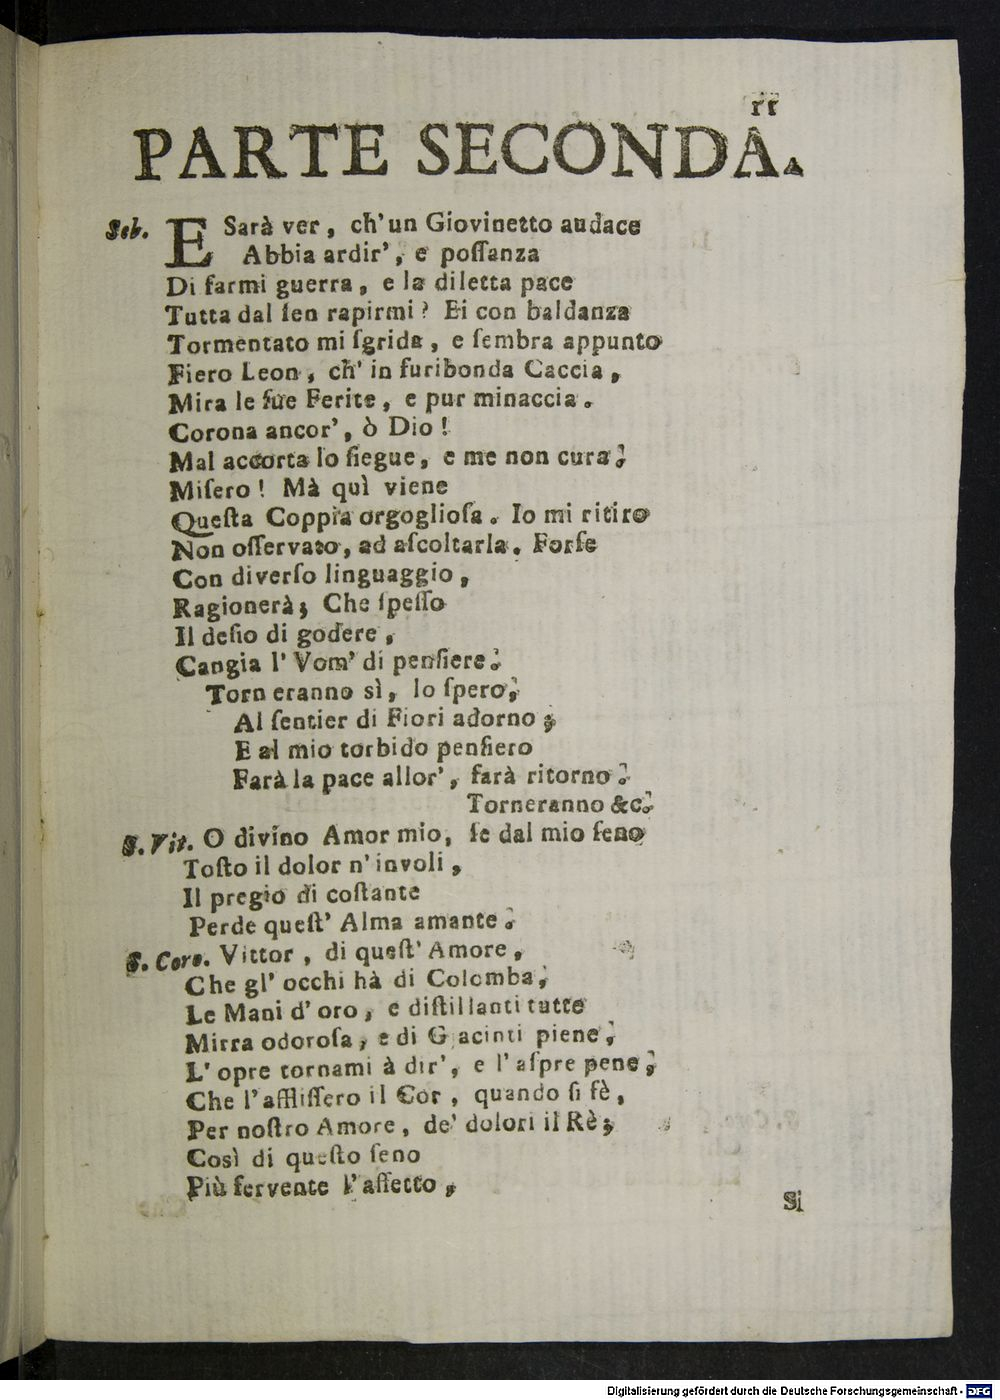 11
PARTE SECONDA.
Seb. E Sarà ver, ch' un Giovinetto audace
Abbia ardir', e poſſanza
Di farmi guerra, e la diletta pace
Tutta dal ſen rapirmi? Ei con baldanza
Tormentato mi ſgrida, e ſembra appunto
Fiero Leon, ch' in furibonda Caccia,
Mira le ſue Ferite, e pur minaccia.
Corona ancor', ò Dio!
Mal accorta lo ſiegue, e me non cura;
Miſero! Mà quì viene
Queſta Coppia orgoglioſa. Io mi ritiro
Non oſſervato, ad aſcoltarla. Forſe
Con diverſo linguaggio,
Ragionerà; Che ſpeſſo
Il deſio di godere,
Cangia l' Vom' di penſiere.
Torneranno sì, lo ſpero,
Al ſentier di Fiori adorno;
E al mio torbido penſiero
Farà la pace allor', farà ritorno.
Torneranno &c.
S. Vit. O divino Amor mio, ſe dal mio ſeno
Toſto il dolor n' involi,
Il pregio di coſtante
Perde queſt' Alma amante.
S. Coro. Vittor, di queſt' Amore,
Che gl' occhi hà di Colomba,
Le Mani d' oro, e diſtillanti tutte
Mirra odoroſa, e di Giacinti piene,
L' opre tornami à dir', e l' aſpre pene,
Che l' affliſſero il Cor, quando ſi fè,
Per noſtro Amore, de' dolori il Rè;
Così di queſto ſeno
Più fervente l' affetto,
Si
Digitalisierung gefördert durch die Deutsche Forschungsgemeinschaft - DFG